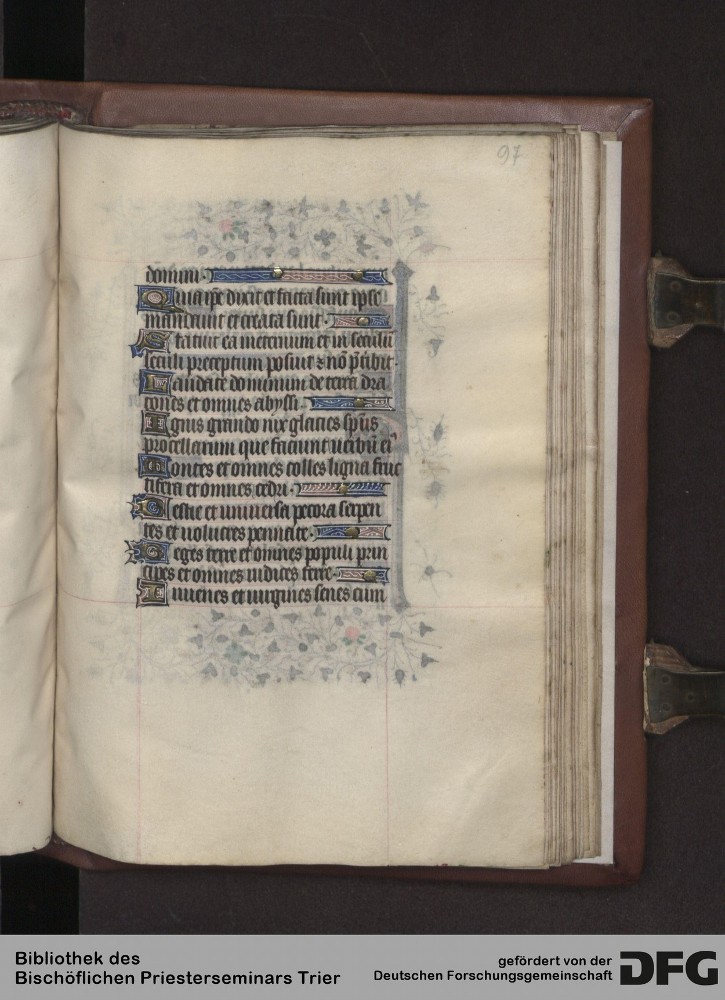 97
domini
Quia ip̄e dixit et facta sunt ipse
mandauit et creata sunt
Statuit ea ineternum et in seculū
seculi preceptum posuit ⁊ nō p̄t̄ibit
Laudate dominum de terra dra
cones et omnes abyssi
Ignis grando nix glacies sp̄us
procellarum que faciunt uerbū ei᷒
Montes et omnes colles ligna fruc
tifera et omnes cedri
Bestie et uniuersa pecora serpen
tes et uolucres pennate
Reges terre et omnes populi prin
cipes et omnes iudices terre
Iuuenes et uirgines senes cum
Bibliothek des
Bischöflichen Priesterseminars Trier
gefördert von der
Deutschen Forschungsgemeinschaft
DFG